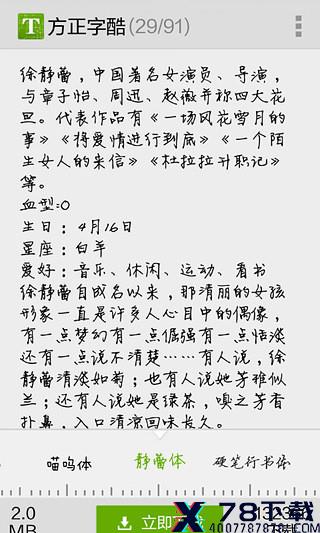 方正字酷(29/91)
徐静蕾，中国著名女演员、导演，
与章子怡、周迅、赵薇并称四大花
旦。代表作品有《一场风花雪月的
事》《将爱情进行到底》《一个陌
生女人的来信》《杜拉拉升职记》
等。
血型:O
生日：4月16日
星座：白羊
爱好：音乐、休闲、运动、看书
徐静蕾自成名以来，那清丽的女孩
形象一直是许多人心目中的偶像，
有一点梦幻有一点倔强有一点恬淡
还有一点说不清楚……有人说，徐
静蕾清淡如菊；也有人说她芳雅似
兰；还有人说她是绿茶，嗅之芳香
扑鼻，入口清凉回味长久。
喵呜体 静蕾体 硬笔行书体
2.0
MB
立即下载
78下载
4007787878.COM